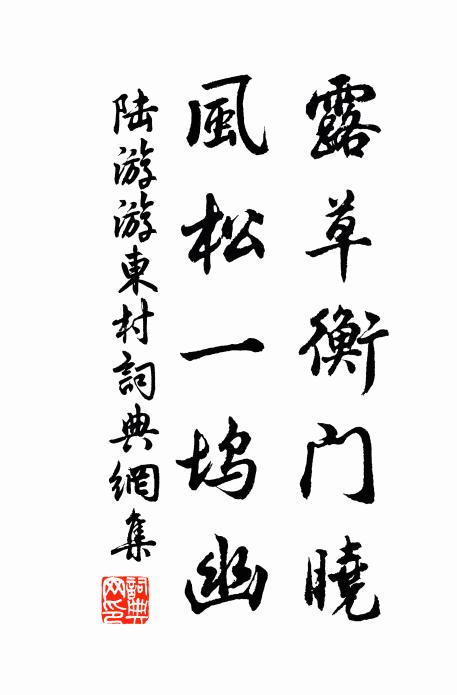 露草衡门曉
風松一坞幽
陆游游東村詞典網集
詞典网印